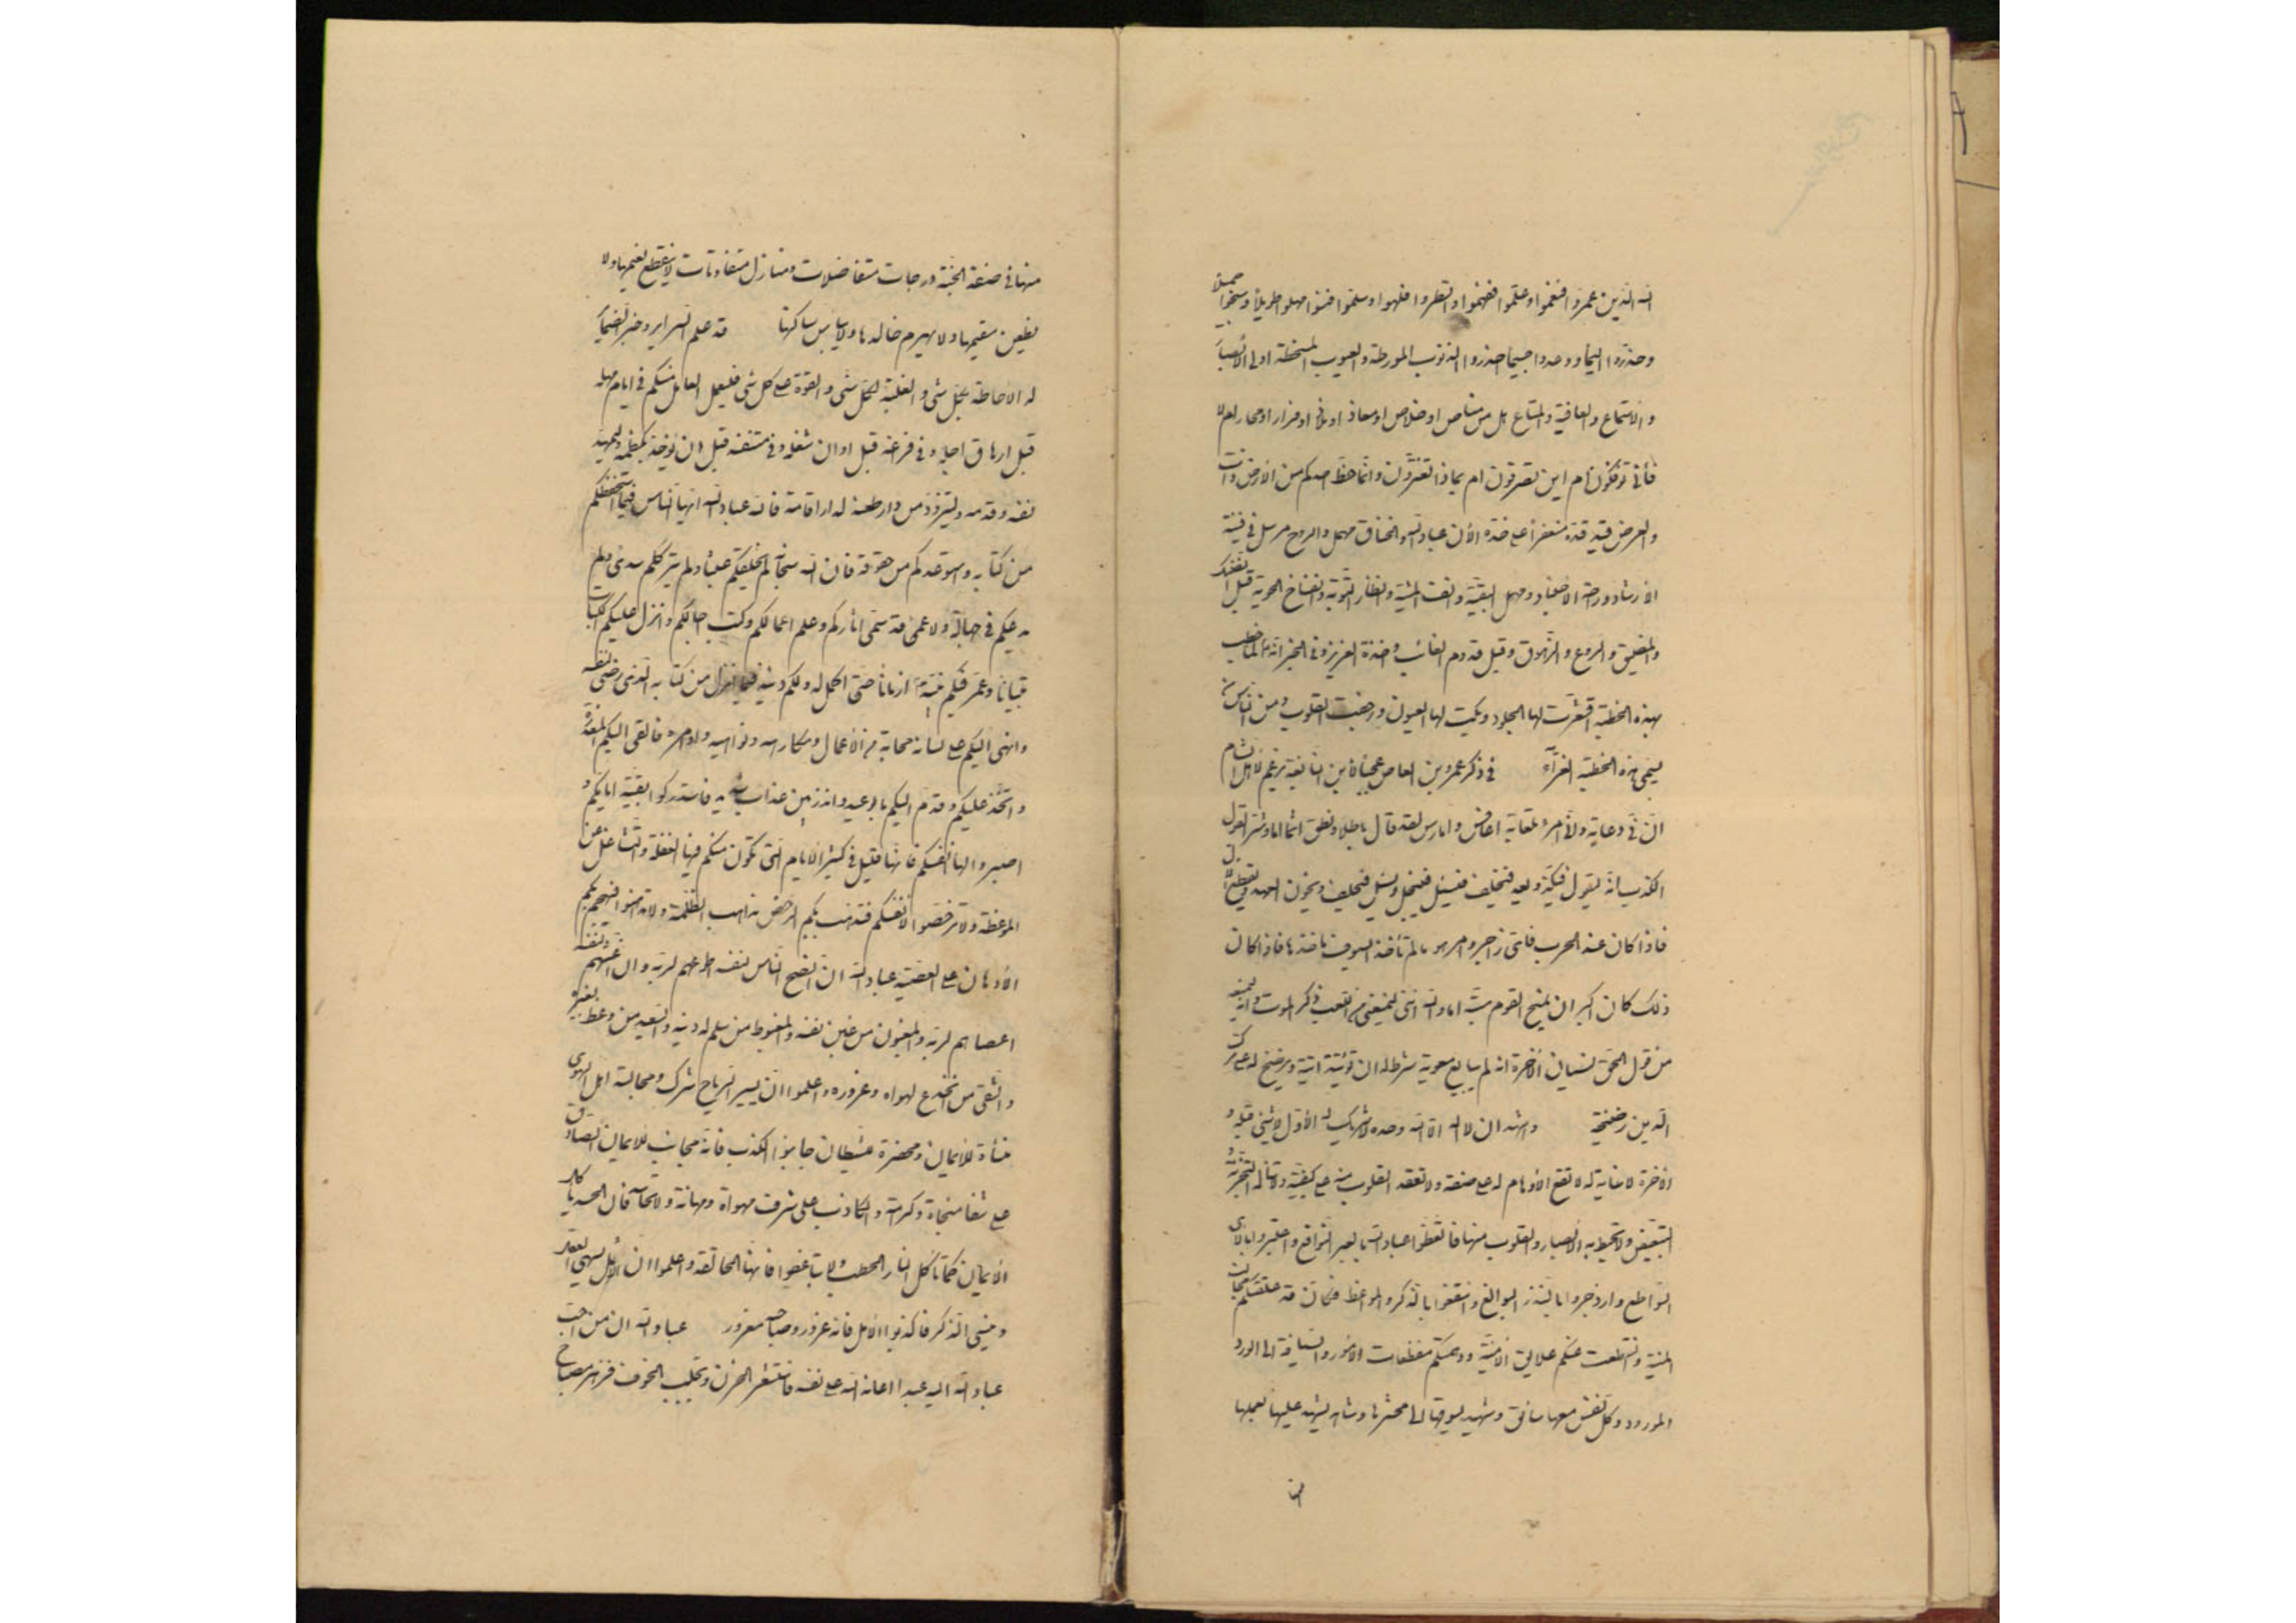 الله الذين عمروا فنعموا وعلموا ففهموا وانظروا فلهوا وسلموا فنسوا امهلوا طويلا ومنحوا جميلا
وحذروا اليما ووعدوا جسيما احذروا الذنوب المورطة والعيوب المسخطة اولى الابصار
والاسماع والعافية والمتاع هل من مناص او خلاص او معاذ او ملاذ او فرار او محار ام لا
فأنى تؤفكون ام اين تصرفون ام بماذا تغترون وانما حظ احدكم من الارض ذات
والعرض قيد قده منعفرا على خده الان عباد الله والخناق مهمل والروح مرسل في فينة
الارشاد وراحة الاجساد ومهل البقية وانف المشية وانظار التوبة وانفساح الحوبة قبل الضنك
والمضيق والروع والزهوق وقبل قدوم الغائب واخذة العزيز وفي الخبر انه لما خطب
بهذه الخطبة اقشعرت لها الجلود وبكت لها العيون ورجفت القلوب ومن الناس من
يسمى هذه الخطبة الغراء في ذكر عمرو بن العاص عجبا لابن النابغة يزعم لاهل الشام
ان في دعابة واني امرء تلعابة اعافس وامارس لقد قال باطلا ونطق اثما اما وشر القول
الكذب انه ليقول فيكذب ويعد فيخلف فيسئل فيبخل ويسئل فيحلف ويخون العهد ويقطع الال
فاذا كان عند الحرب فاى زاجر وامر هو ما لم تأخذ السيوف ماخذها فاذا كان
ذلك كان اكبر ان يمنح القوم سبته اما والله انى ليمنعني من اللعب ذكر الموت وانه ليمنعه
من قول الحق نسيان الاخرة انه لم يبايع معوية شرط له ان يؤتيه اتية ويرضخ له على ترك
الدين رضيخة واشهد ان لا اله الا الله وحده لا شريك له الاول لا شئ قبله و
الاخر لا غاية له لا تقع الاوهام له على صفة ولا تعقد القلوب منه على كيفية ولا تناله التجزئة
والتبعيض ولا تحيط به الابصار والقلوب منها فاتعظوا عباد الله بالعبر النوافع واعتبروا بالاى
السواطع وازدجروا بالنذر البوالغ وانتفعوا بالذكر والمواعظ فكأن قد علقتكم مخالب
المنية وانقطعت عنكم علايق الامنية ودهمتكم مفظعات الامور والسياقة الى الورد
المورود وكل نفس معها سائق وشهيد يسوقها الى محشرها وشاهد يشهد عليها بعملها
منها
منها في صفة الجنة درجات متفاضلات ومنازل متفاوتات لا ينقطع نعيمها ولا
يظعن مقيمها ولا يهرم خالدها ولا يبأس ساكنها قد علم السراير وخبر الضماير
له الاحاطة بكل شئ والغلبة لكل شئ والقوة على كل شئ فليعمل العامل منكم في ايام مهله
قبل ارهاق اجله وفي فراغه قبل اوان شغله وفي متنفسه قبل ان يؤخذ بكظمه وليمهد
لنفسه وقدمه وليتزود من دار ظعنه لدار اقامته فالله عباد الله ايها الناس فيما استحفظكم
من كتابه واستودعكم من حقوقه فان الله سبحانه لم يخلقكم عبثا ولم يترككم سدى ولم
يدعكم في جهالة ولا عمى قد سمى اثاركم وعلم اعمالكم وكتب اجالكم وانزل عليكم الكتاب
تبيانا وعمر فيكم نبيه ازمانا حتى اكمل له ولكم دينه فيما انزل من كتابه الذى رضى لنفسه
وانهى اليكم على لسانه محابه من الاعمال ومكارهه ونواهيه واوامره فالقى اليكم المعذرة
واتخذ عليكم وقدم اليكم بالوعيد وانذر بين عذاب شديد فاستدركوا بقية ايامكم و
اصبروا لها انفسكم فانها قليل في كثير الايام التى تكون منكم فيها الغفلة والتشاغل عن
الموعظة ولا ترخصوا لانفسكم فتذهب بكم الرخص مذاهب الظلمة ولا تداهنوا فيهجم بكم
الادهان على المعصية عباد الله ان انصح الناس لنفسه اطوعهم لربه وان اغشهم لنفسه
اعصاهم لربه والمغبون من غبن نفسه والمغبوط من سلم له دينه والسعيد من وعظ بغيره
والشقى من انخدع لهواه وغروره واعلموا ان يسير الرياء شرك ومجالسة اهل الهوى
منساة للايمان ومحضرة للشيطان جانبوا الكذب فانه مجانب للايمان الصادق
على شفا منجاة وكرامة والكاذب على شرف مهواة ومهانة ولا تحاسدوا فان الحسد ياكل
الايمان كما تاكل النار الحطب ولا تباغضوا فانها الحالقة واعلموا ان الامل يسهى العقل
وينسى الذكر فاكذبوا الامل فانه غرور وصاحبه مغرور عباد الله ان من احب
عباد الله اليه عبدا اعانه الله على نفسه فاستشعر الحزن وتجلبب الخوف فزهر مصباح